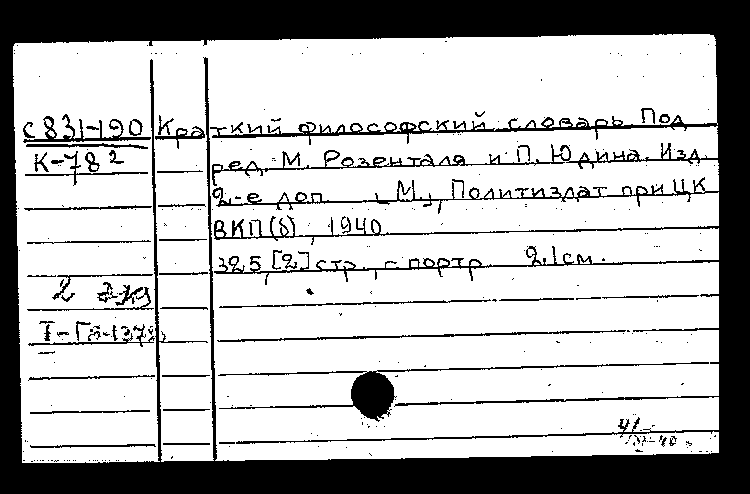 с831-190 Краткий философский словарь Под
К-78 2 ред. М. Розенталя и П. Юдина. Изд.
2-е доп. [М.], Политиздат при ЦК
ВКП(б), 1940
325, [2] стр., с портр. 21см.
2 экз